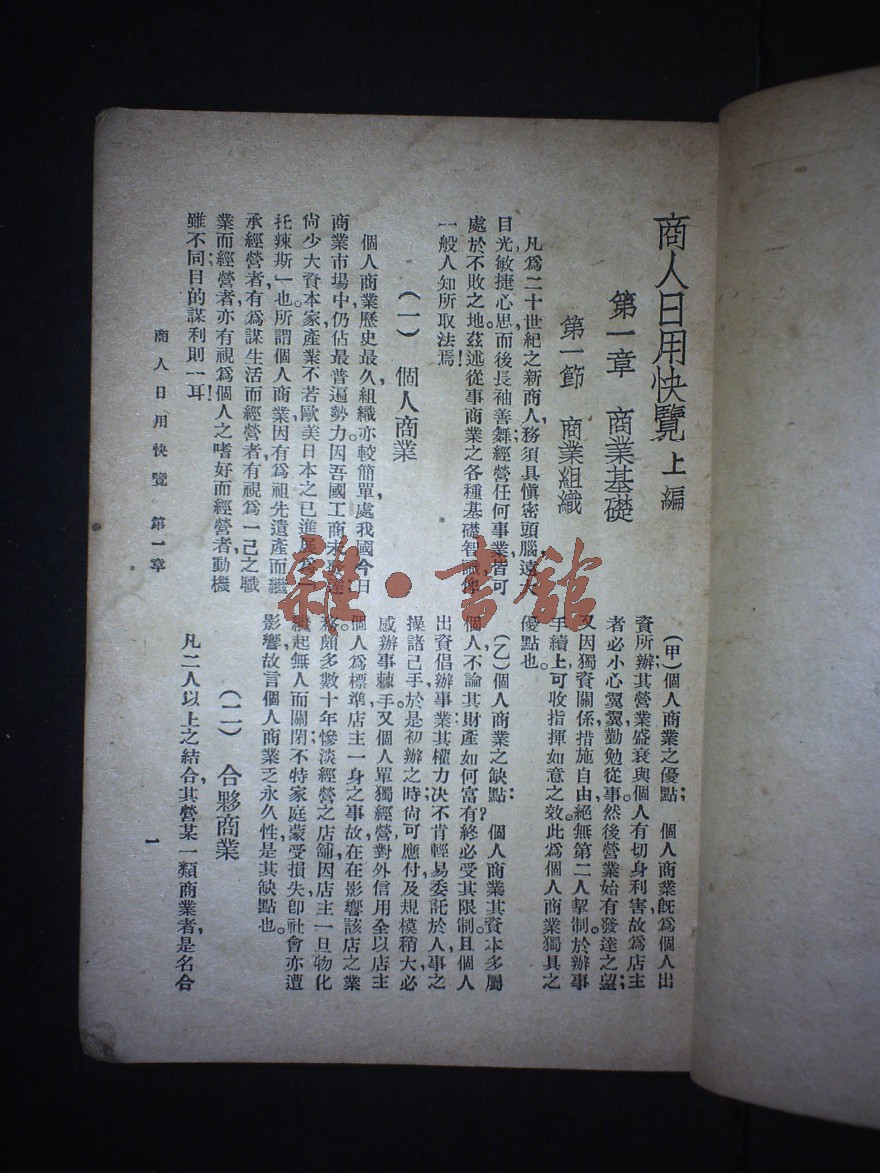 商人日用快覽 上編
第一章 商業基礎
第一節 商業組織
凡爲二十世紀之新商人,務須具愼密頭腦,遠大
目光,敏捷心思,而後長袖善舞,經營任何事業,皆可
處於不敗之地。茲述從事商業之各種基礎智識,俾
一般人知所取法焉!
(一) 個人商業
個人商業歷史最久,組織亦較簡單,處我國今日
商業市場中,仍佔最普遍勢力。因吾國工商未發達;
尙少大資本家產業,不若歐美日本之已進展爲「
托辣斯」也。所謂個人商業,因有爲祖先遺產而繼
承經營者,有爲謀生活而經營者,有視爲一己之職
業而經營者,亦有視爲個人之嗜好而經營者,動機
雖不同;目的謀利則一耳!
(甲)個人商業之優點; 個人商業旣爲個人出
資所辦,其營業盛衰,與個人有切身利害,故爲店主
者,必小心翼翼,勤勉從事,然後營業始有發達之望;
又因獨資關係,措施自由,絕無第二人掣制,於辦事
手續上,可收指揮如意之效。此爲個人商業獨具之
優點也。
(乙)個人商業之缺點: 個人商業其資本多屬
個人,不論其財產如何富有,終必受其限制;且個人
出資倡辦事業,其權力決不肯輕易委託於人,事之
操諸己手,於是初辦之時,尙可應付,及規模稍大,必
感辦事棘手。又個人單獨經營,對外信用,全以店主
個人爲標準,店主一身之事故,在在影響該店之業
務。頗多數十年慘淡經營之店舖,因店主一旦物化,
繼起無人而關閉,不特家庭蒙受損失,卽社會亦遭
影響;故言個人商業乏永久性,是其缺點也。
(二) 合夥商業
凡二人以上之結合,其營某一類商業者,是名合
商人日用快覽 第一章
一
雜·書館